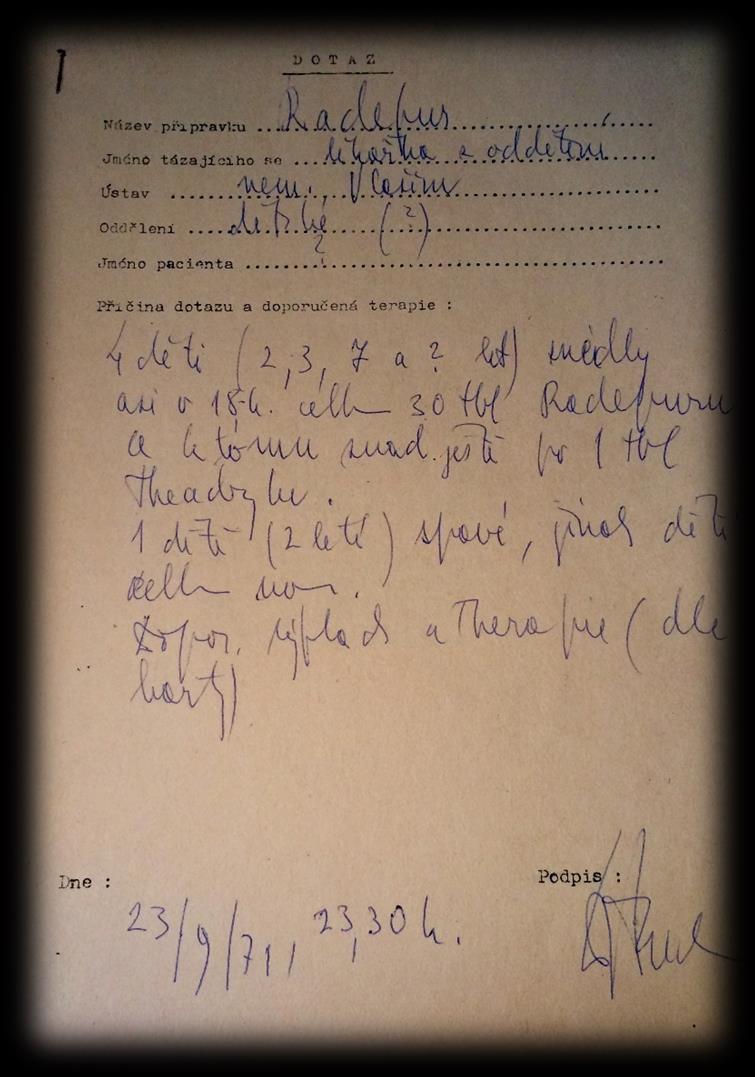 1
DOTAZ
Název přípravku ... Radepur ...
Jméno tázajícího se ... lékařka z odděleni
Ústav ... nem. Vlašim ...
Oddělení ... dětské (?) ...
Jméno pacienta ... ? ...
Příčina dotazu a doporučená terapie :
4 děti (2, 3, 7 a ? let) snědly
asi v 18 h. celk 30 tbl Radepuru
a k tomu snad ještě po 1 tbl
Theadrylu.
1 dítě (2 leté) spavé, jinak děti
celk
Dopor. výplach a Therapie (dle
karty)
Dne :
Podpis :
23/9/71, 23,30 h.